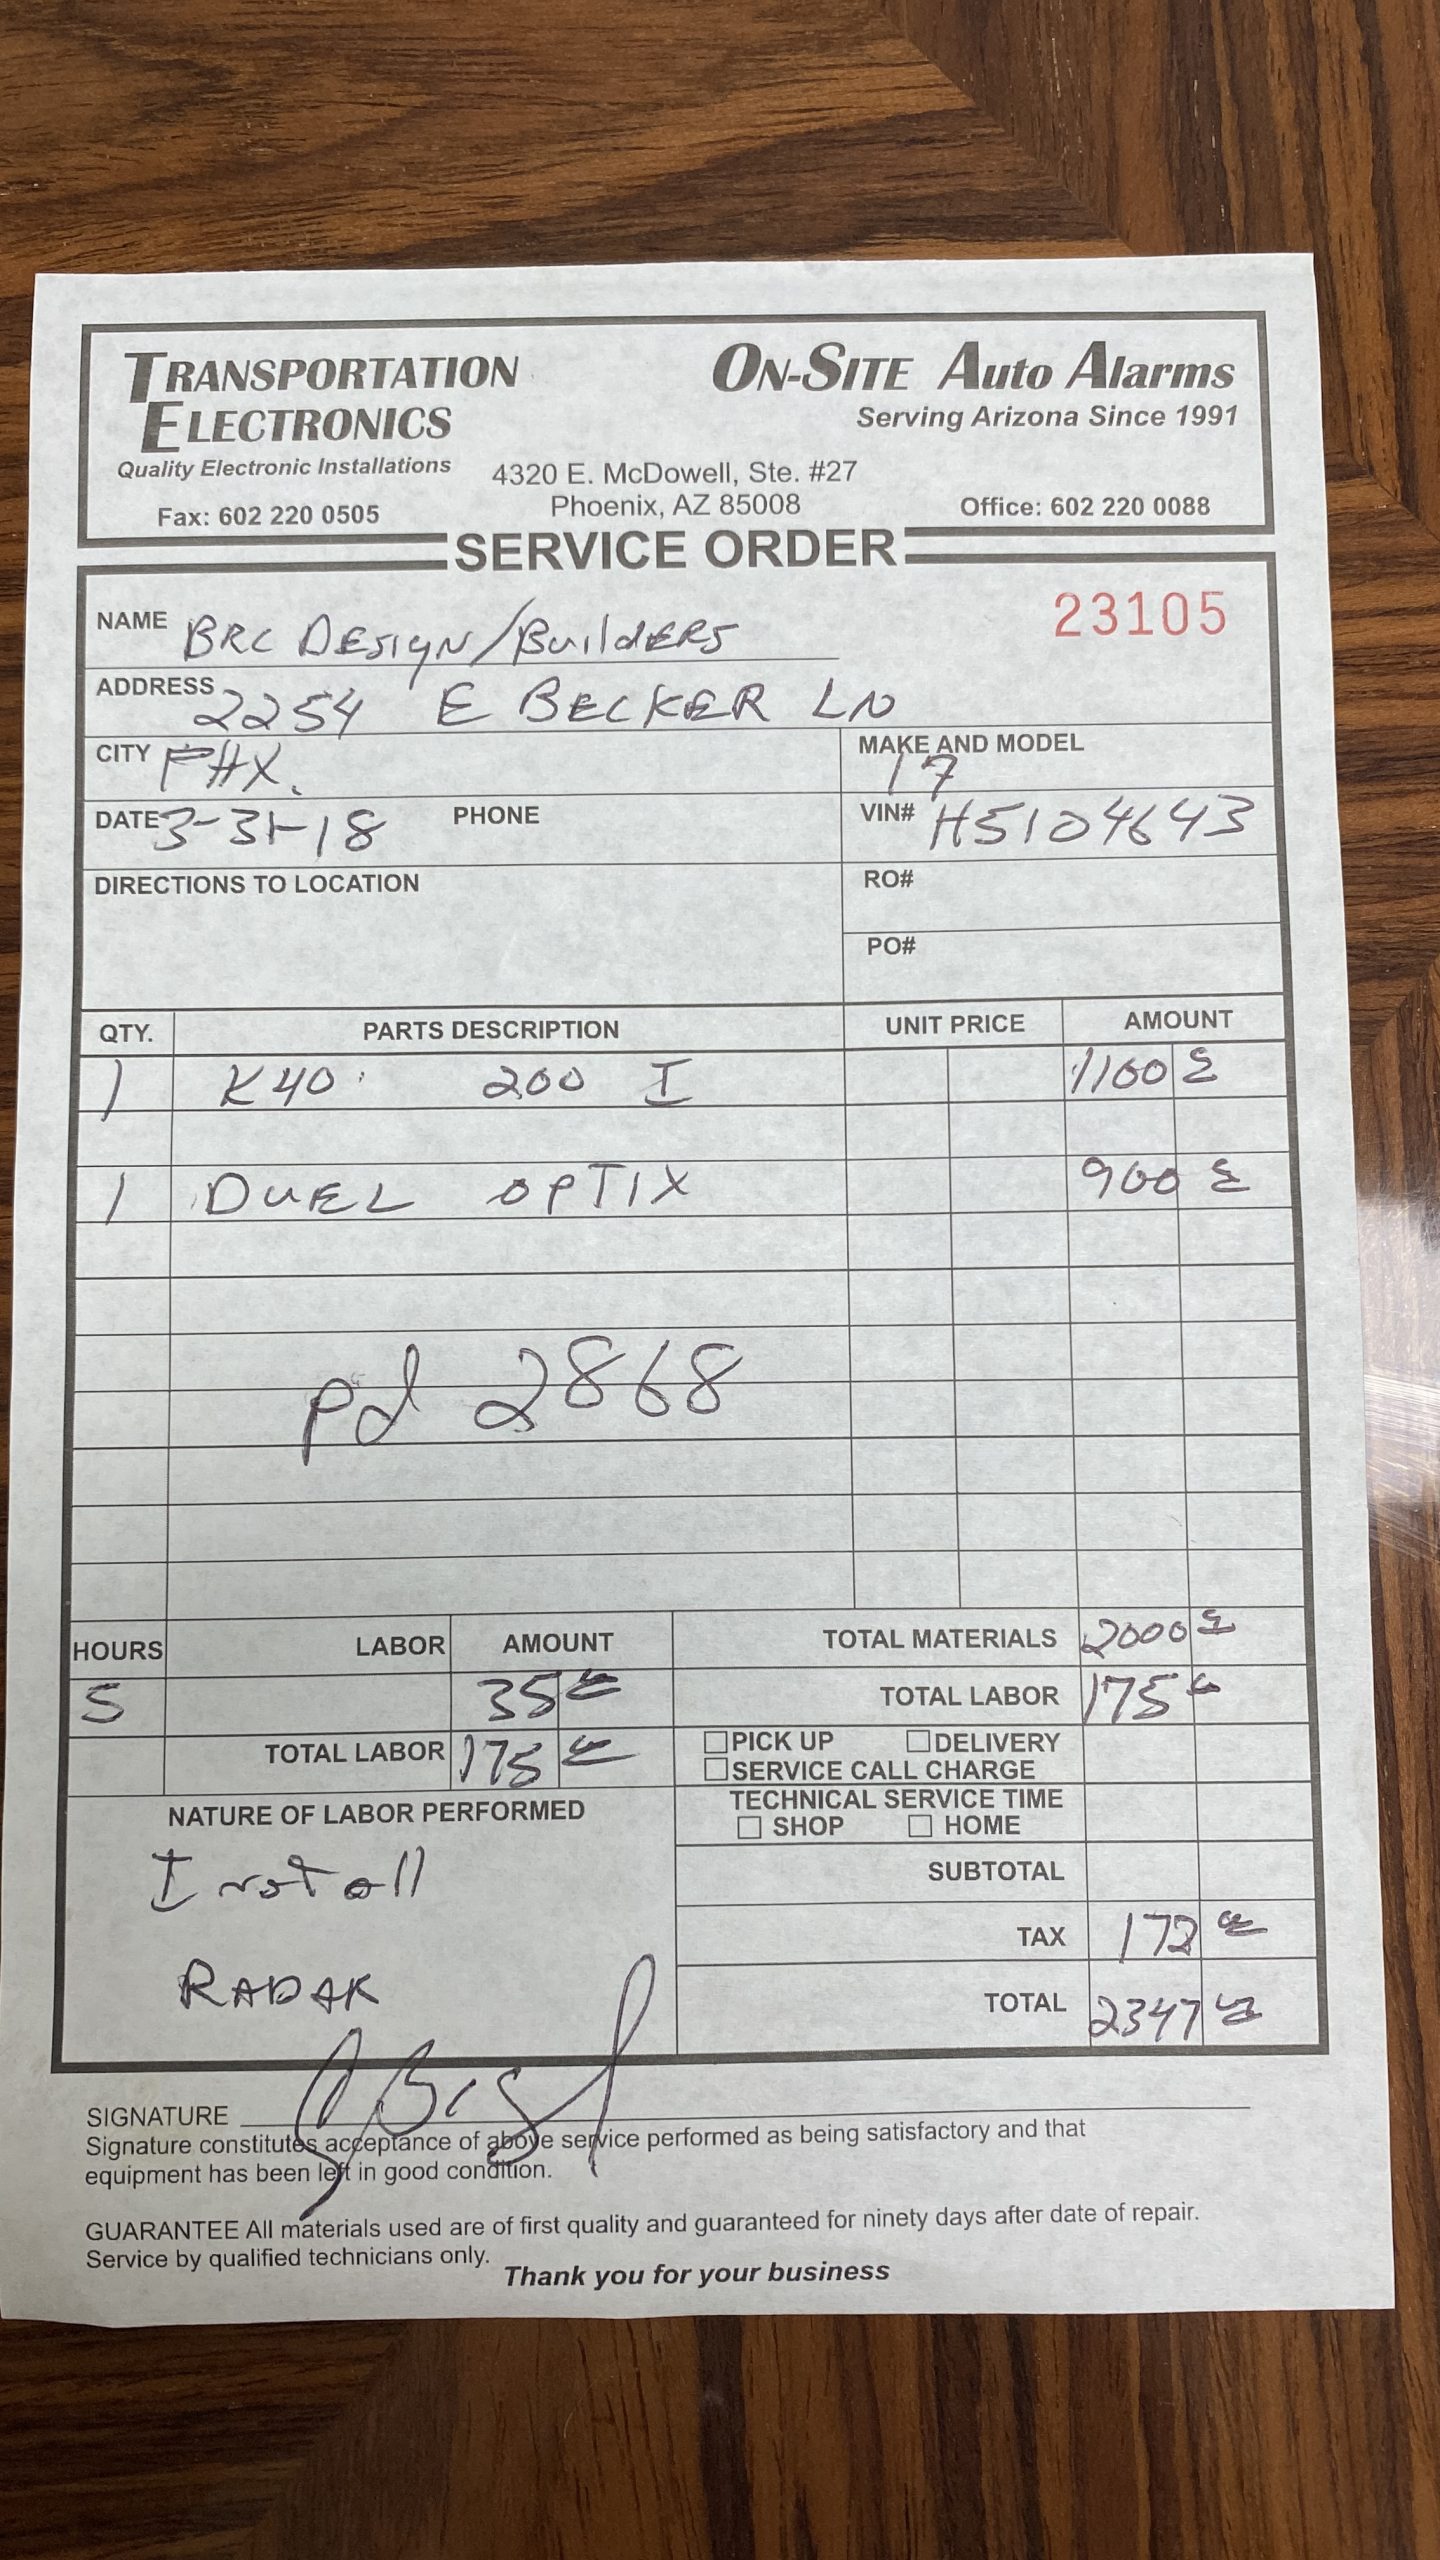 TRANSPORTATION ELECTRONICS
Quality Electronic Installations
Fax: 602 220 0505
ON-SITE Auto Alarms
Serving Arizona Since 1991
4320 E. McDowell, Ste. #27
Phoenix, AZ 85008
Office: 602 220 0088
SERVICE ORDER
23105
NAME BRC DESIGN/BuildERS
ADDRESS 2254 E BECKER LN
CITY PHX.
MAKE AND MODEL 17
DATE 3-31-18 PHONE
VIN# H5104643
DIRECTIONS TO LOCATION
RO#
PO#
QTY. PARTS DESCRIPTION UNIT PRICE AMOUNT
1 K40 200 I 1100
1 DUEL OPTIX 900
pd 2868
HOURS LABOR AMOUNT TOTAL MATERIALS 2000
5 35 TOTAL LABOR 175
TOTAL LABOR 175
PICK UP DELIVERY
SERVICE CALL CHARGE
TECHNICAL SERVICE TIME
SHOP HOME
SUBTOTAL
TAX 172
TOTAL 2347
NATURE OF LABOR PERFORMED
Install
RADAR
SIGNATURE
Signature constitutes acceptance of above service performed as being satisfactory and that
equipment has been left in good condition.
GUARANTEE All materials used are of first quality and guaranteed for ninety days after date of repair.
Service by qualified technicians only.
Thank you for your business